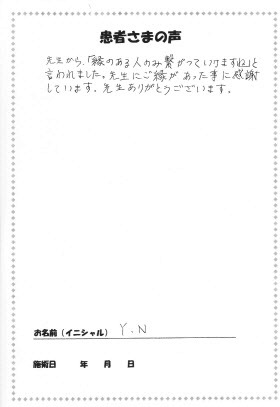 患者さまの声
先生から、「縁のある人のみ繋がっていけますね」と
言われました。先生にご縁があった事に感謝
しています。先生ありがとうございます。
お名前(イニシャル) Y.N
施術日 年 月 日